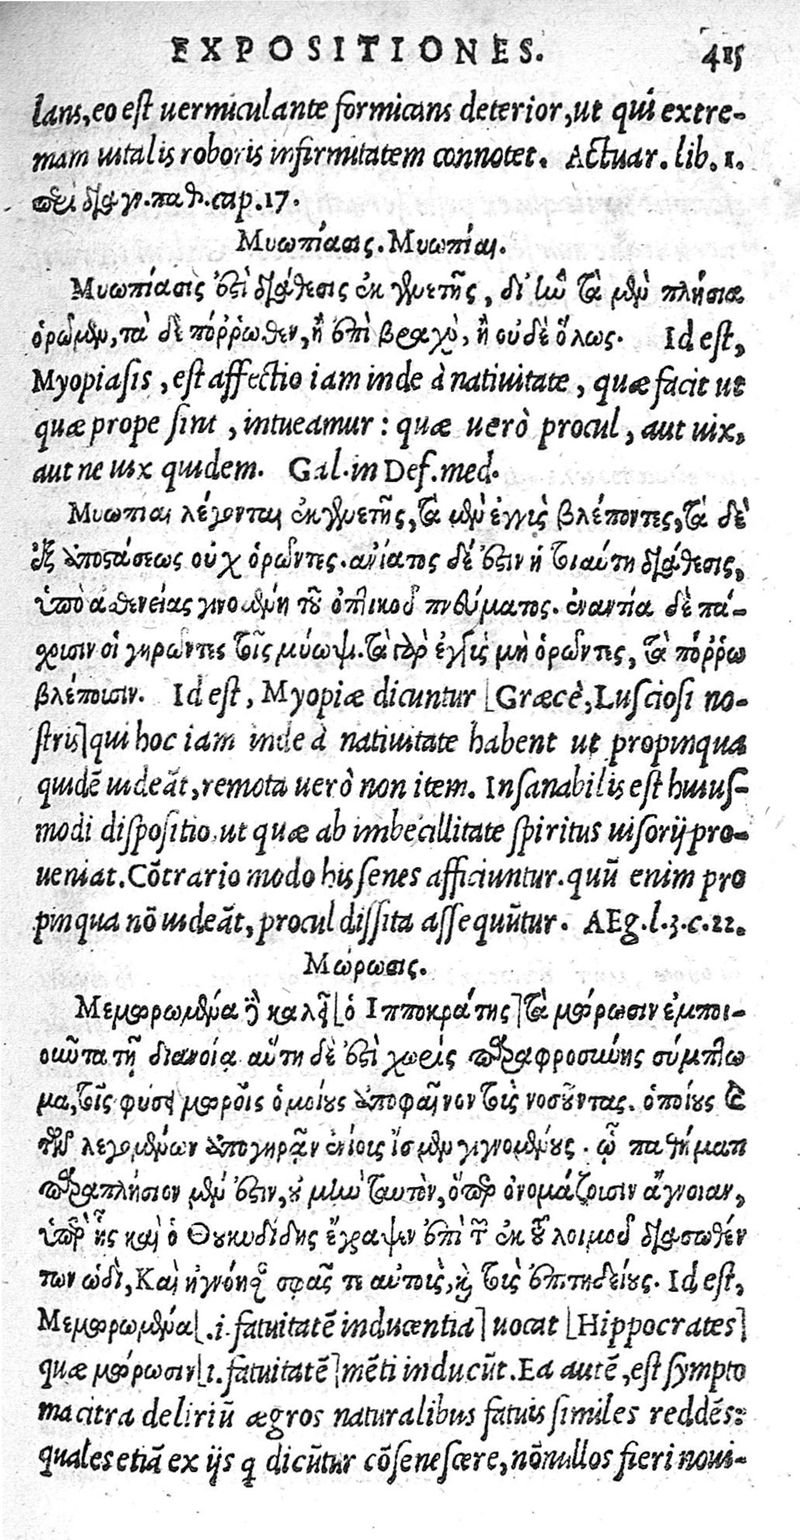 EXPOSITIONES. 415
lans, eo est uermiculante formicans deterior, ut qui extre-
mam uitalis roboris infirmitatem connotet. Actuar. lib. 1.
περὶ διαγν. παθ. cap. 17.
Μυωπίασις. Μυωπίαι.
Μυωπίασίς ἐστὶ διάθεσις ἐκ γενετῆς, δι' ἣν τὰ μὲν πλήσια
ὁρῶμεν, τὰ δὲ πόῤῥωθεν, ἢ ἐπὶ βραχὺ, ἢ οὐδὲ ὅλως. Id est,
Myopiasis, est affectio iam inde à natiuitate, quæ facit ut
quæ prope sint, intueamur: quæ uerò procul, aut uix,
aut ne uix quidem. Gal. in Def. med.
Μυωπίαι λέγονται ἐκ γενετῆς, τὰ μὲν ἐγγὶς βλέποντες, τὰ δὲ
ἐξ ἀποστάσεως οὐχ ὁρῶντες. ἀνίατος δέ ἐστιν ἡ τοιαύτη διάθεσις,
ὑπὸ ἀσθενείας γινομένη τοῦ ὀπτικοῦ πνεύματος. ἐναντία δὲ πά-
χουσιν οἱ γηρῶντες τοῖς μύωψι. τὰ γὰρ ἐγγὶς μὴ ὁρῶντες, τὰ πόῤῥω
βλέπουσιν. Id est, Myopiæ dicuntur [Græcè, Lusciosi no-
stris] qui hoc iam inde à natiuitate habent ut propinqua
quidẽ uideãt, remota uerò non item. Insanabilis est huius-
modi dispositio, ut quæ ab imbecillitate spiritus uisorij pro-
ueniat. Cõtrario modo his senes afficiuntur. quũ enim pro
pinqua nõ uideãt, procul dissita assequũtur. AEg. l. 3. c. 22.
Μώρωσις.
Μεμωρωμένα [δὲ] καλεῖ [ὁ Ἱπποκράτης] τὰ μώρωσιν ἐμποι-
οῦντα τῇ διανοίᾳ. αὕτη δὲ ἐστὶ χωρὶς παραφροσύνης σύμπτω
μα, τοῖς φύσει μωροῖς ὁμοίους ἀποφαῖνον τοὺς νοσοῦντας. ὁποίους
τῶν λεγομένων ἀπογηρᾷν ἐνίους ἴσμεν γιγνομένους. ᾧ παθήματι
παραπλήσιον μέν ἐστιν, οὐ μὴν ταυτὸν, ὅπερ ὀνομάζουσιν ἄγνοιαν,
ὑπὲρ ἧς καὶ ὁ Θουκυδίδης ἔγραψεν ἐπὶ τῶν ἐκ τοῦ λοιμοῦ διασωθέν
των ὡδὶ, Καὶ ἠγνόησαν σφᾶς τε αὐτοὺς, καὶ τοὺς ἐπιτηδείους. Id est,
Μεμωρωμένα [.i. fatuitatẽ inducentia] uocat [Hippocrates]
quæ μώρωσιν [i. fatuitatẽ] mẽti inducũt. Ea autẽ, est sympto
ma citra deliriũ ægros naturalibus fatuis similes reddẽs:
quales etiã ex ijs q dicũtur cõsenescere, nõnullos fieri noui-